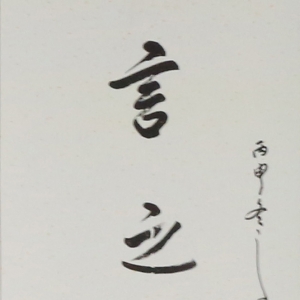 言之
丙申冬